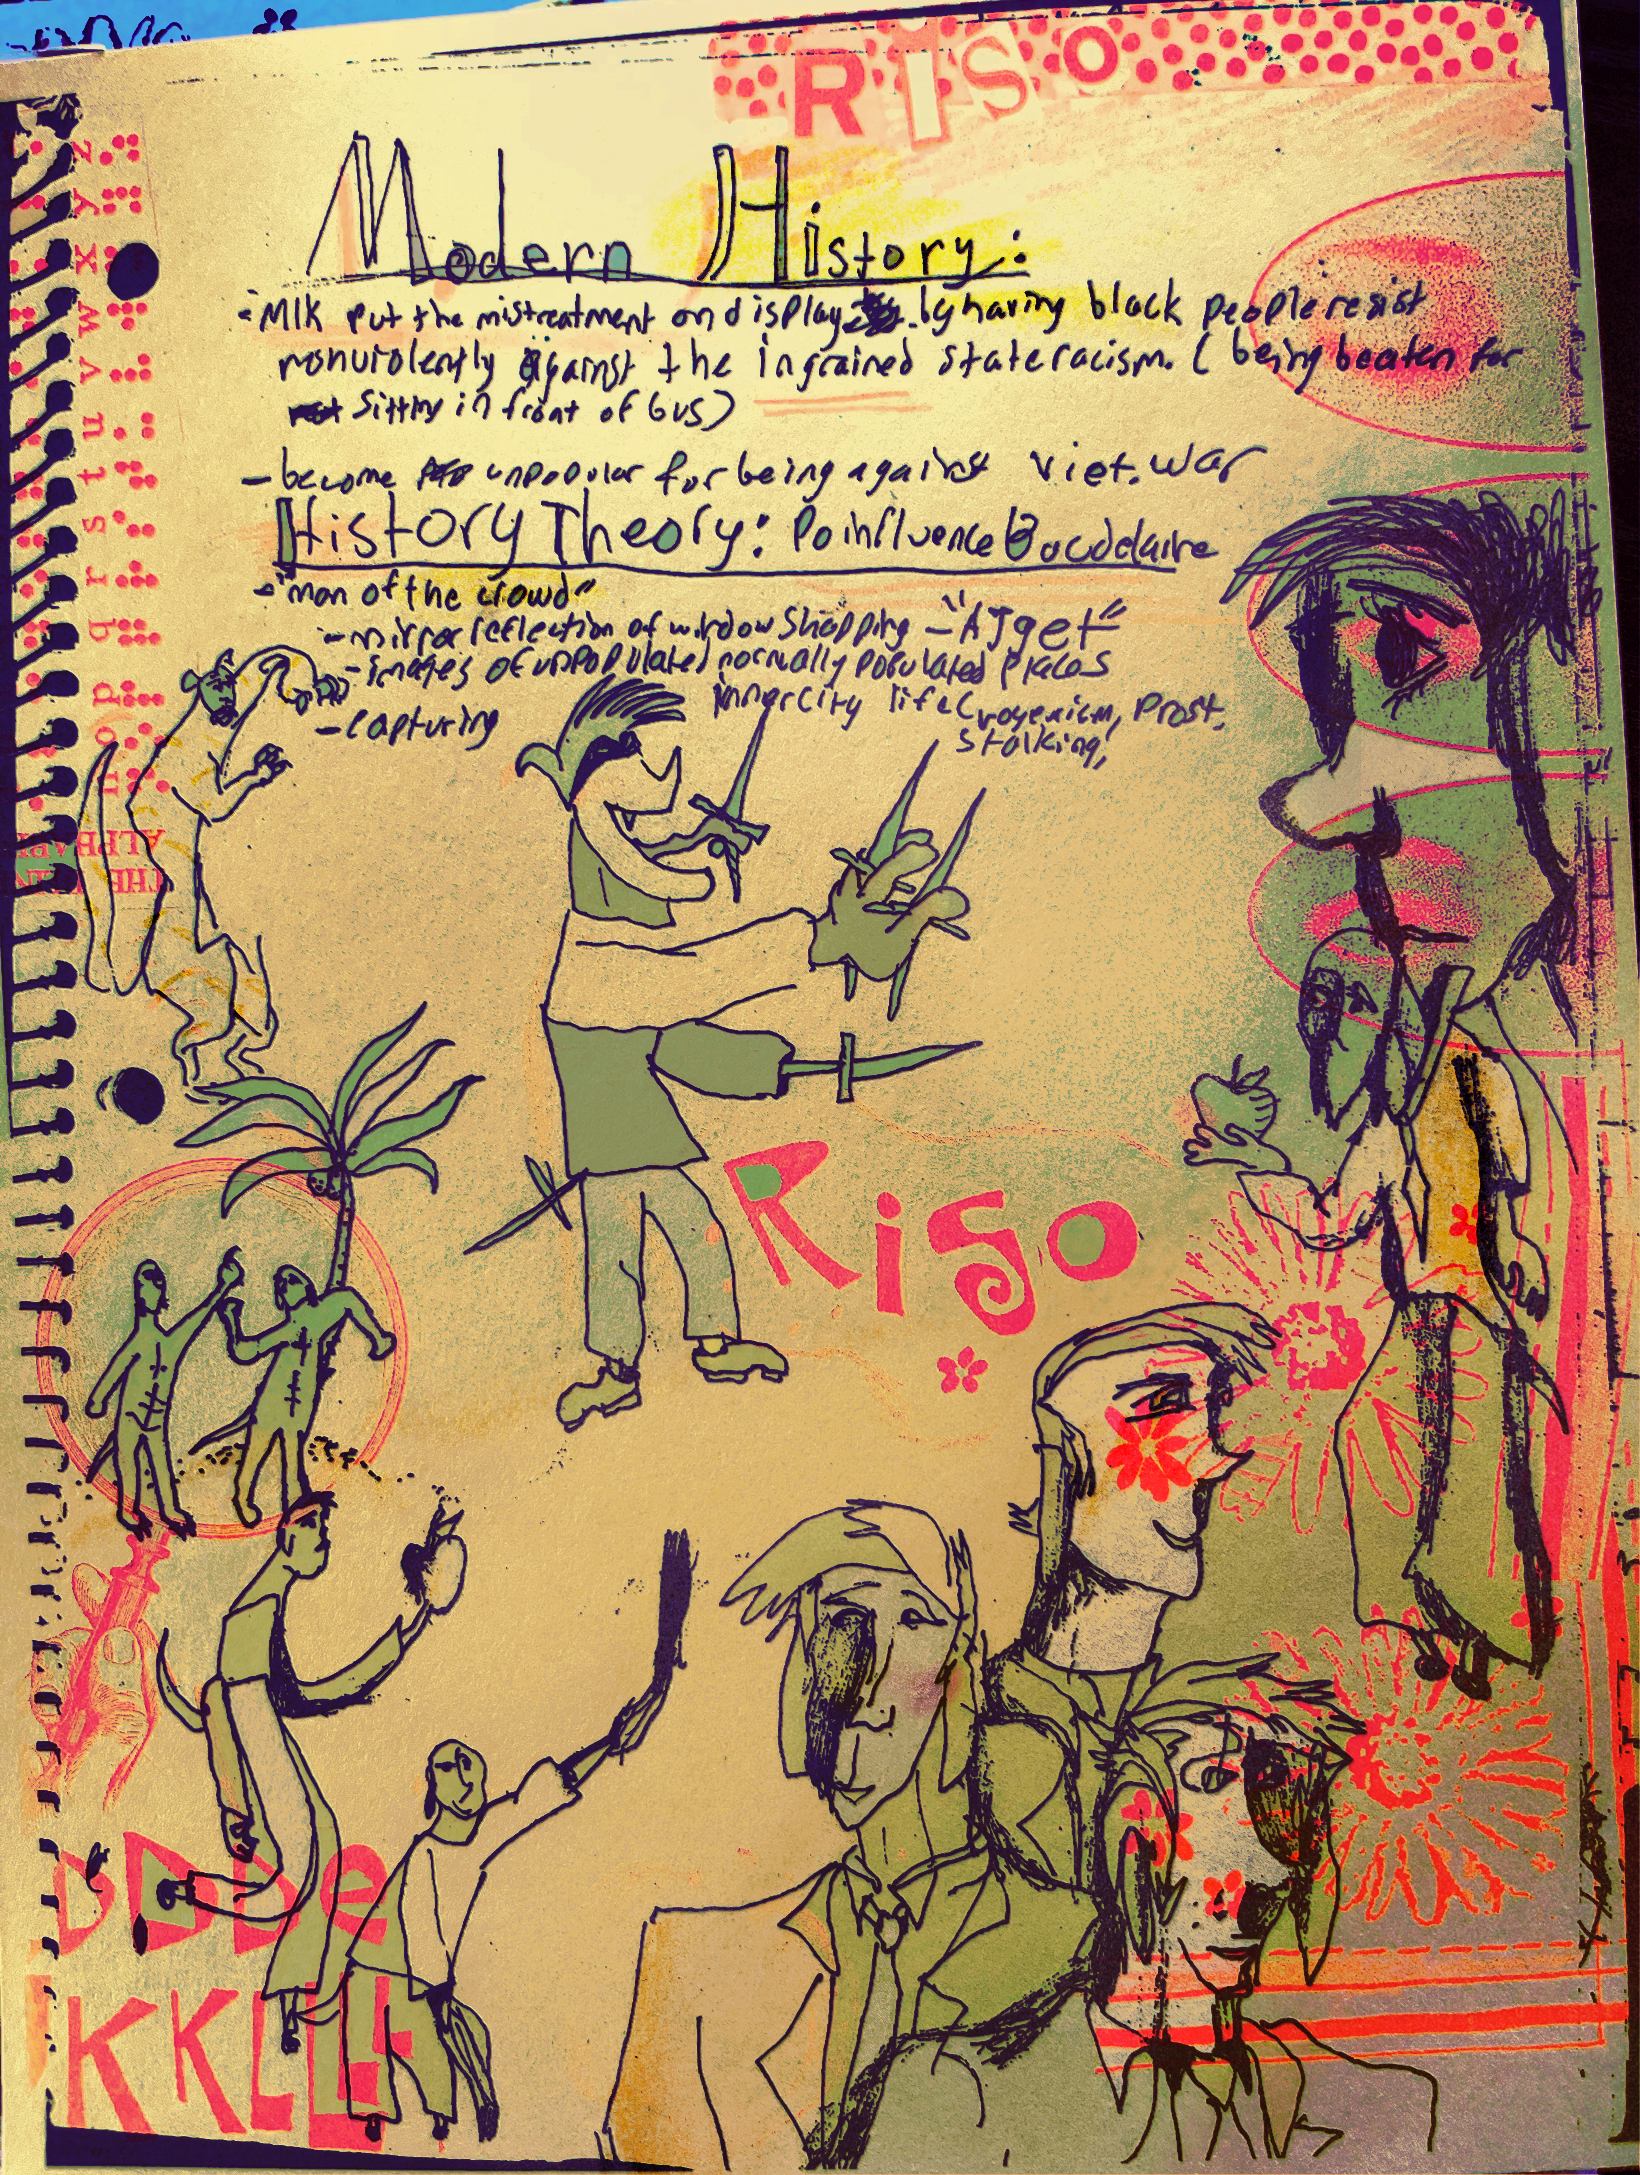 RISO
Modern History:
- MlK put the mistreatment on display by having black people resist
nonviolently against the ingrained state racism. ( being beaten for
sitting in front of bus)
- become unpopular for being against Viet. War
History Theory: Po influence Baudelaire
- "man of the crowd"
- mirror reflection of window shopping - "Atget"
- images of unpopulated normally populated places
- capturing inner city life ( voyerism, Prost.
stalking,
z
y
x
w
v
u
t
s
r
q
p
o
n
RiSo
DDDe
KKLLL